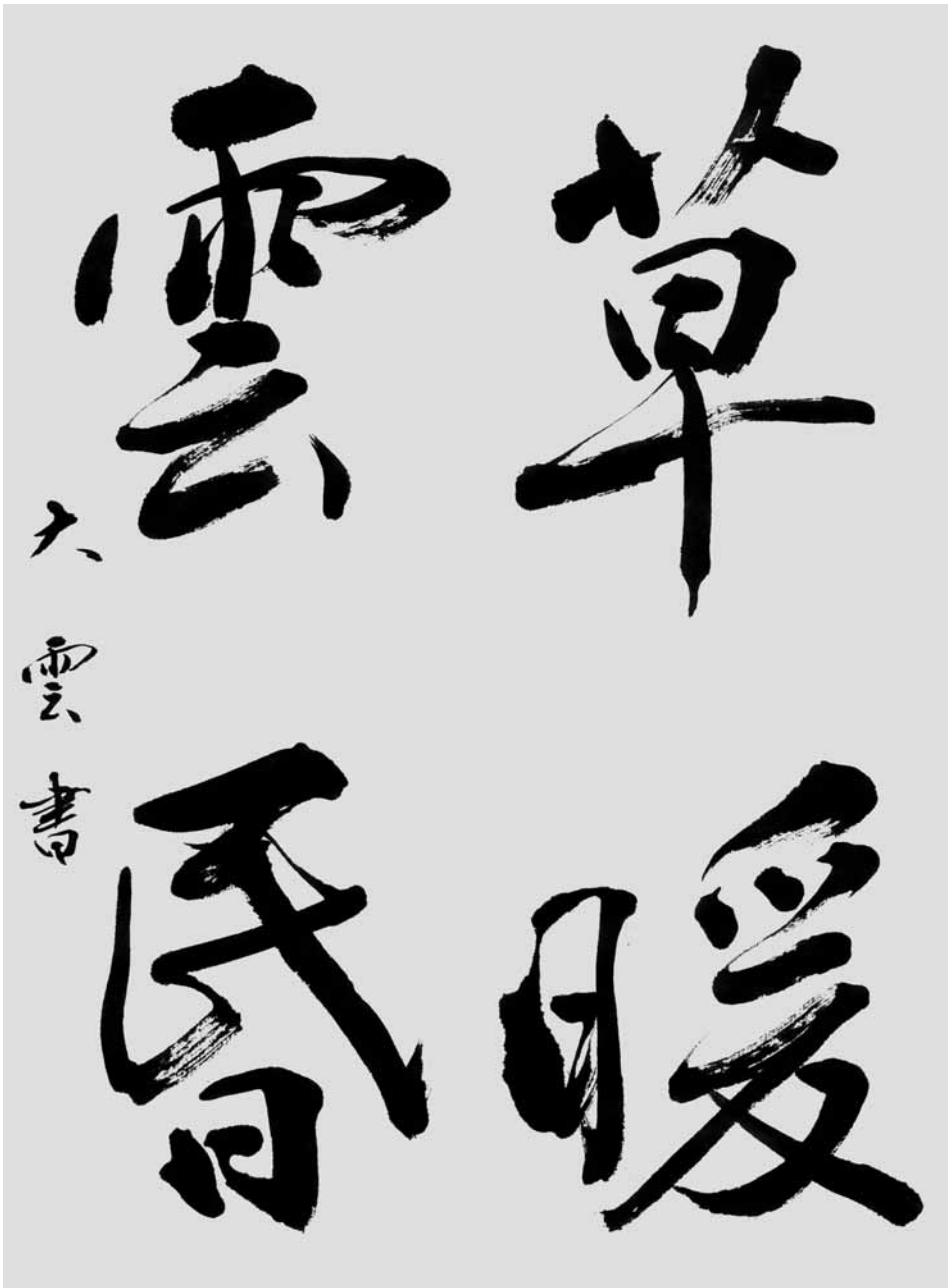 草暖
雲昏
大雲書